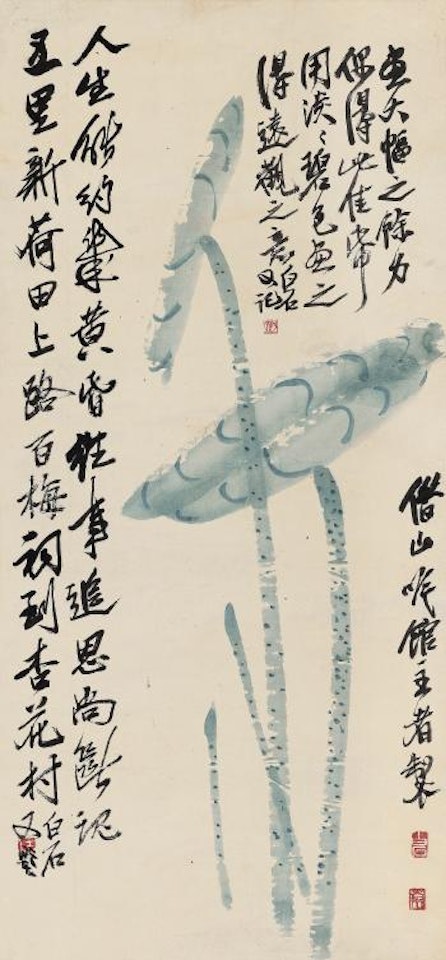 借山吟館主者製
畫大幅之餘力
偶得此佳
用淡淡碧色畫之
得遠觀之意白石又記
人生能約幾黃昏往事追思尚斷魂
五里新荷田上路百梅祠到杏花村白石又題